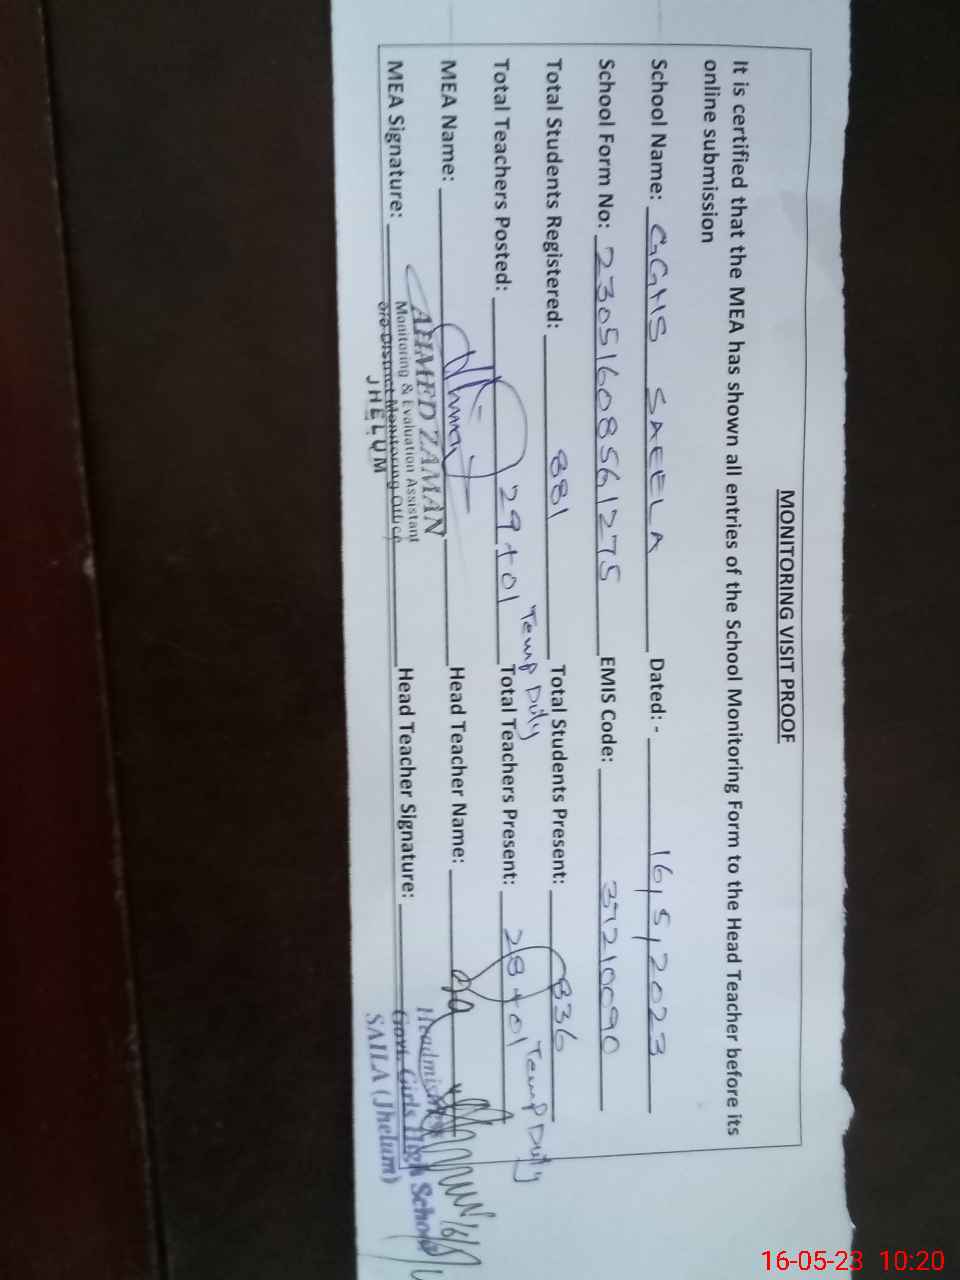 MONITORING VISIT PROOF
It is certified that the MEA has shown all entries of the School Monitoring Form to the Head Teacher before its
online submission
School Name: GGHS SAEELA Dated: - 16/5/2023
School Form No: 23051608561275 EMIS Code: 37210090
Total Students Registered: 881 Total Students Present: 836
Total Teachers Posted: 29+01 Temp Duty Total Teachers Present: 28+01 Temp Duty
MEA Name: Head Teacher Name:
AHMED ZAMAN
MEA Signature: Head Teacher Signature:
Monitoring & Evaluation Assistant
o/o District Monitoring Office
JHELUM
Headmistress
Govt. Girls High School
SAILA (Jhelum)
16-05-23 10:20